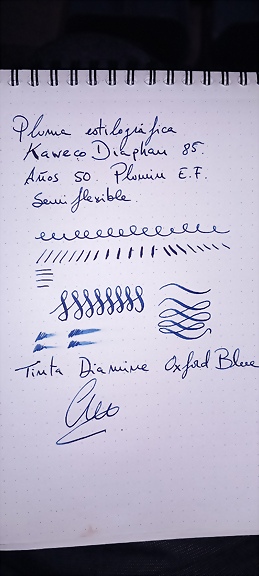 Pluma estilográfica
Kaweco Diaphan 85.
Años 50. Plumin E.F.
Semiflexible.
Tinta Diamine Oxford Blue